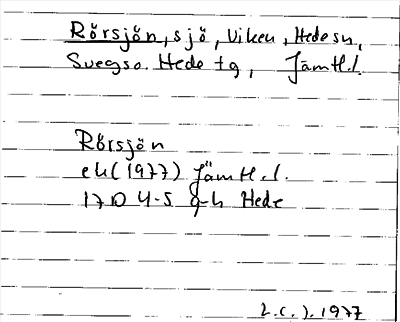 Rörsjön, sjö, Viken, Hede sn,
Svegs o. Hede tg, Jämtl.l.
Rörsjön
ek (1977) Jämtl.l.
17D 4-5 g-h Hede
1977